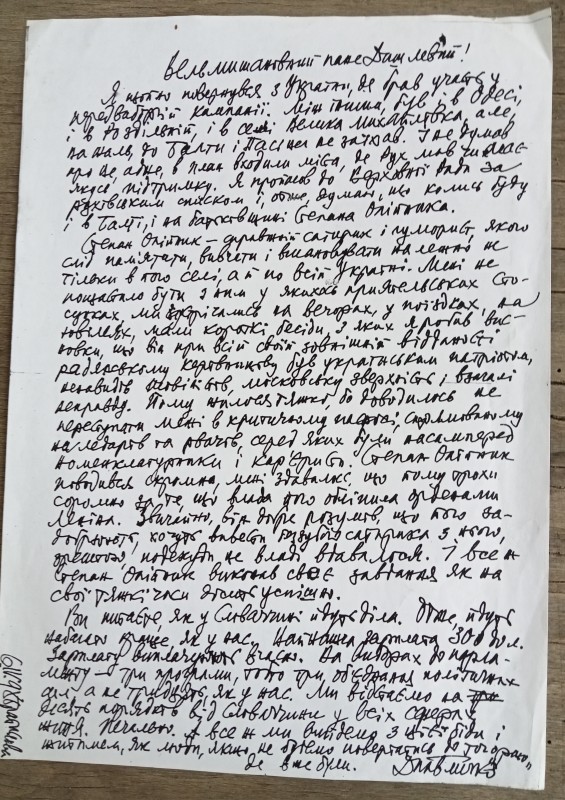 Вельмишановний пане Дашлевий!
Я щойно повернувся з України, де брав участь у
передвиборній кампанії. Між іншим, був і в Одесі,
і в Роздільній, і в селі Велика Михайлівка, але,
на жаль, до Талти і Пасічел не заїхав. І не думав
про це адже, в план входили міста, де Рух мав чималесь
якусь підтримку. Я пройшов до Верховної Ради за
рухівським списком і, отже, думаю, що колись буду
і в Талті, і на батьківщині Степана Олійника.
Степан Олійник – справжній сатирик і гуморист, якого
слід пам'ятати, вивчати і вшановувати належно не
тільки в його селі, а й по всій Україні. Мені не
пощастило бути з ним у якихось приятельських сто-
сунках, ми зустрічались на вечорах, у поїздках, на
ювілеях, мали короткі бесіди, з яких я робив вис-
новки, що він при всій своїй зовнішній відданості
радянському керівництву був українським патріотом,
ненавидів шовінізм, московську зверхність і взагалі
неправду. Йому жилося тяжко, бо доводилось не
переступати межі в критичному пафосі, спрямованому
на ледарів та рвачів, серед яких були насамперед
номенклатурники і кар'єристи. Степан Олійник
поводився скромно, мені здавалось, що йому трохи
соромно за те, що влада його обліпила орденами
Леніна. Звичайно, він добре розумів, що його за-
добрюють, хочуть вивести беззубого сатирика з нього,
зрештою, подекуди це владі вдавалося. І все ж
Степан Олійник виконав своє завдання як на
свої тяжкі часи досить успішно.
Ви питаєте, як у Словаччині йдуть діла. Отже, йдуть
набагато краще, як у нас. Найнижча зарплата 300 дол.
Зарплату виплачують вчасно. На виборах до парла-
менту – три програми, тобто три об'єднання політичних
сил, а не тридцять, як у нас. Ми відстаємо на
десять порядків від Словаччини у всіх сферах
життя. Печально. А все ж ми вийдемо з цієї біди і
житимем, як люди, якщо не будемо повертатись до "того раю",
де вже були. Д. Павличко